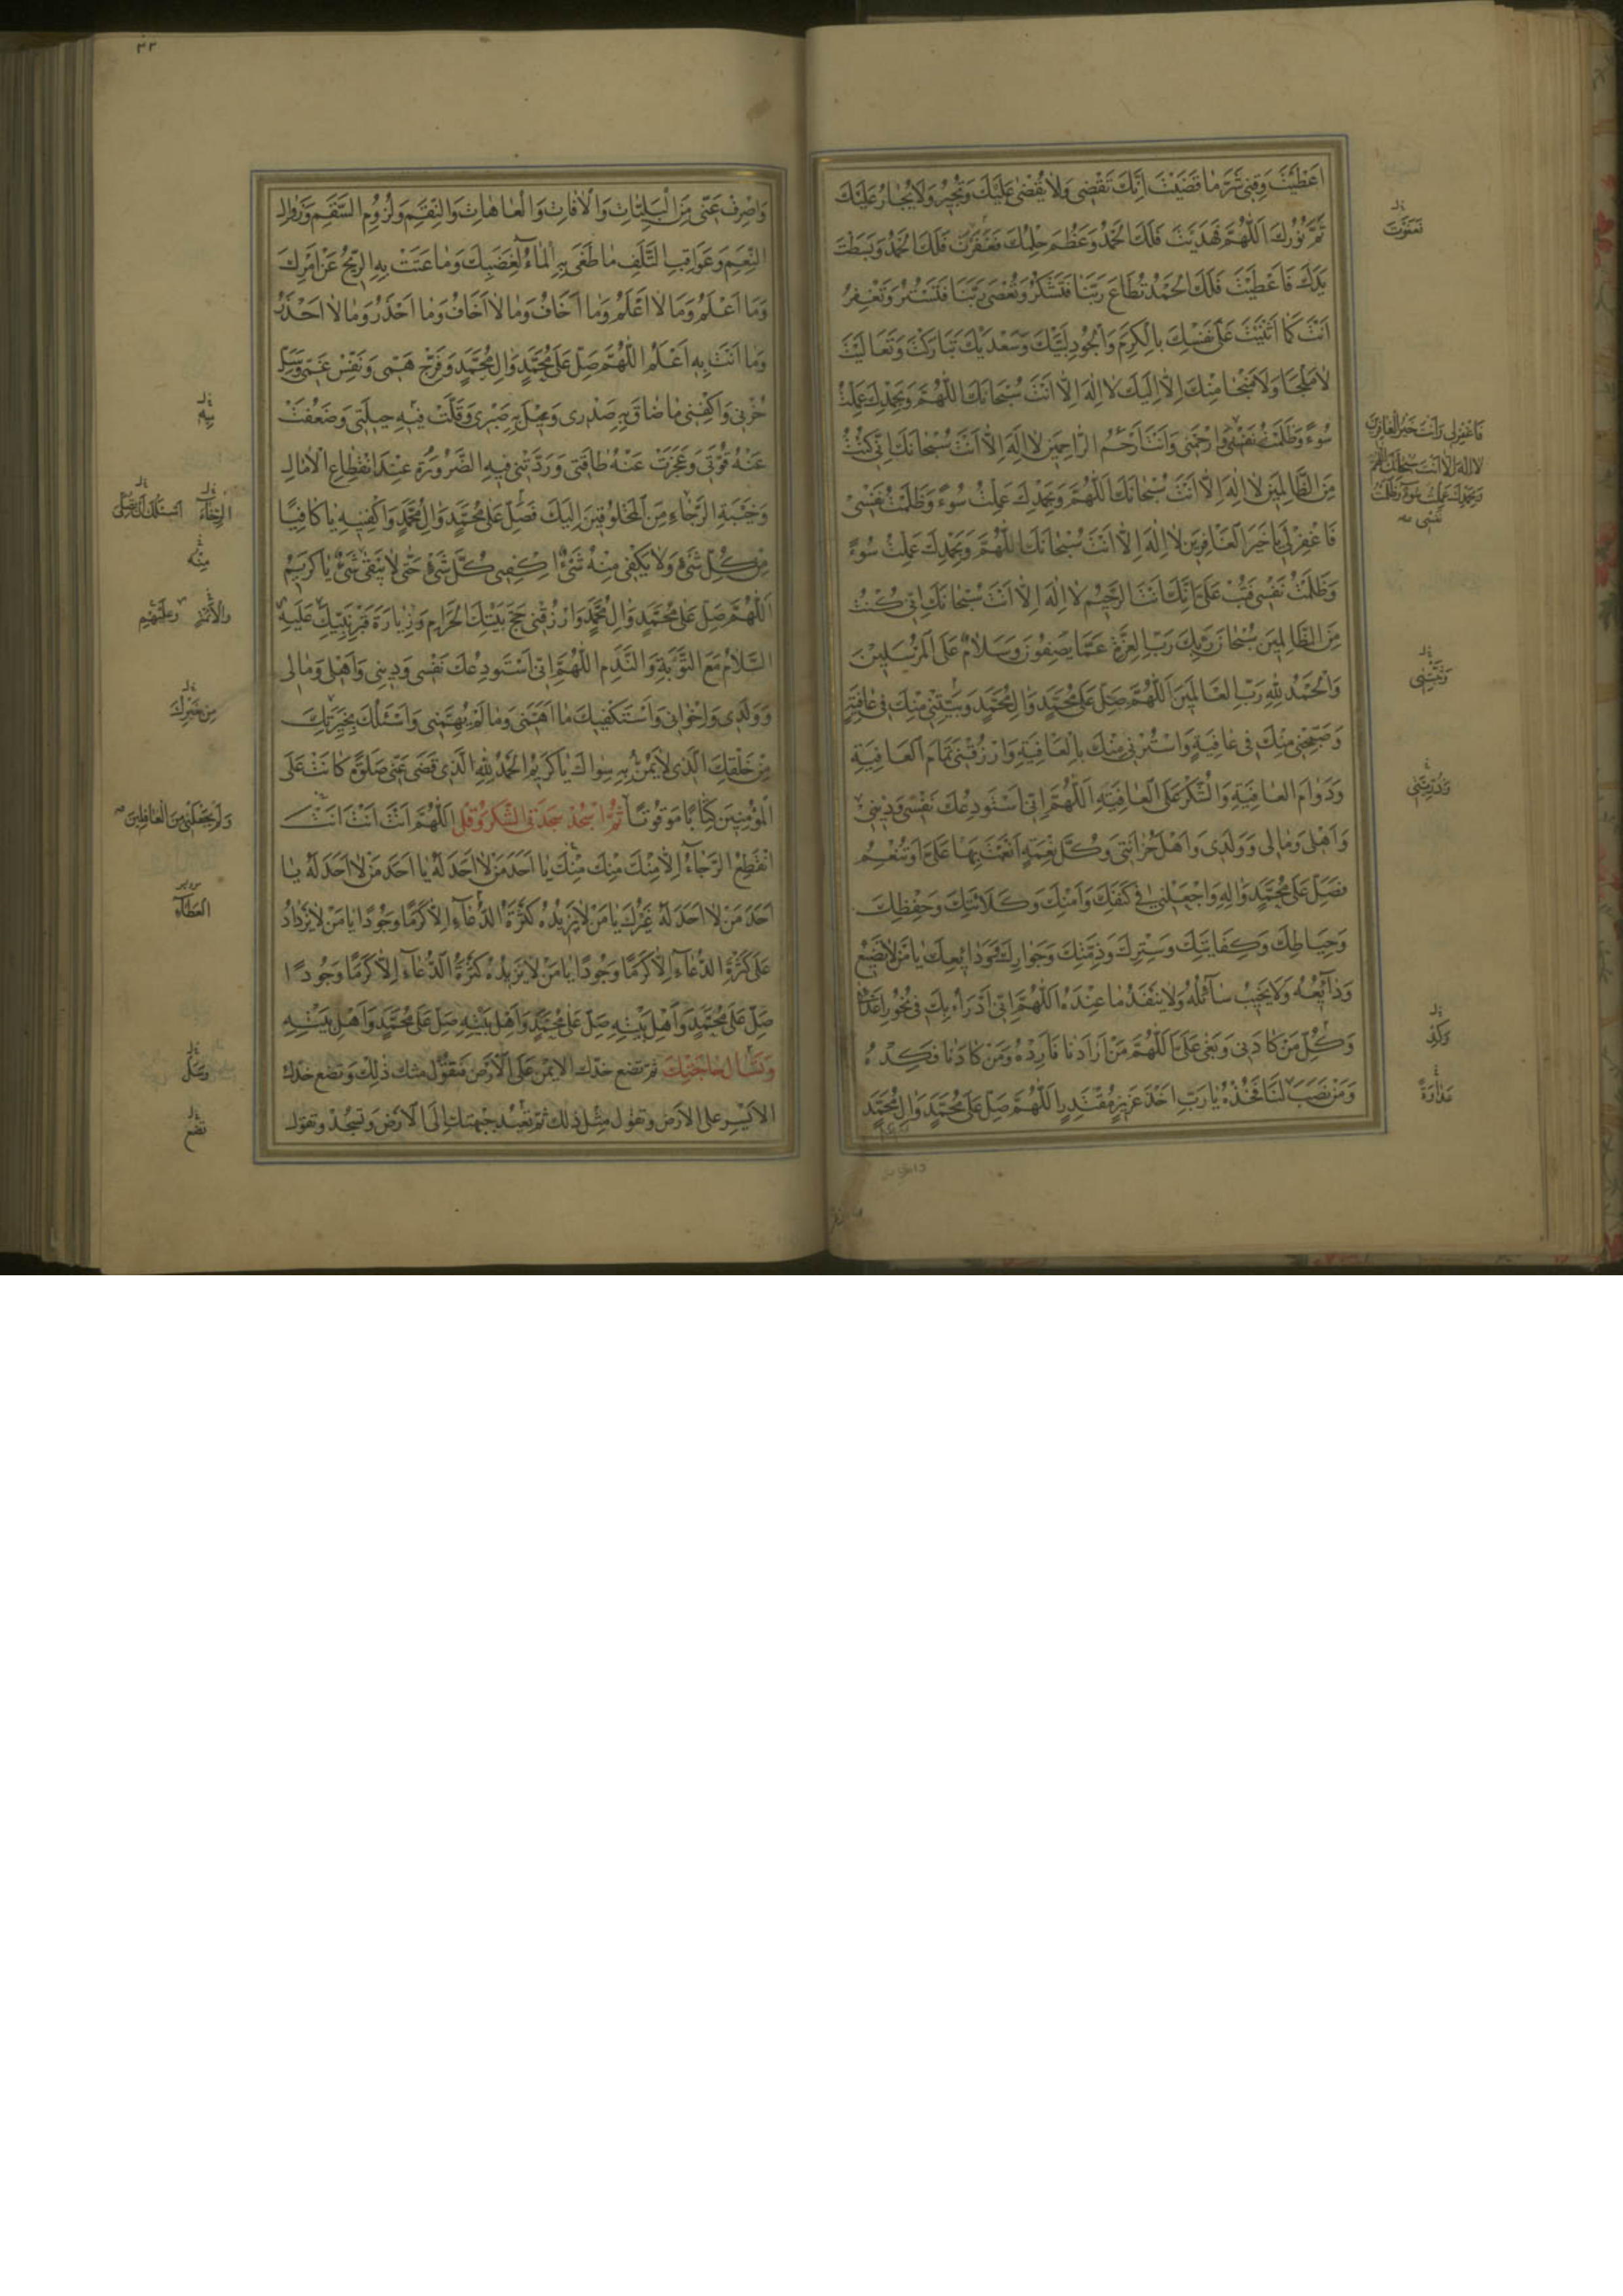 اَعْطَيْتَ وَقِنِي شَرَّ مَا قَضَيْتَ اِنَّكَ تَقْضِي وَلَا يُقْضٰى عَلَيْكَ وَتُجِيرُ وَلَا يُجَارُ عَلَيْكَ
تَمَّ نُورُكَ اَللّٰهُمَّ فَهَدَيْتَ فَلَكَ الْحَمْدُ وَعَظُمَ حِلْمُكَ فَغَفَرْتَ فَلَكَ الْحَمْدُ وَبَسَطْتَ
يَدَكَ فَاَعْطَيْتَ فَلَكَ الْحَمْدُ تُطَاعُ رَبَّنَا فَتَشْكُرُ وَتُعْصٰى رَبَّنَا فَتَسْتُرُ وَتَغْفِرُ
اَنْتَ كَمَا اَثْنَيْتَ عَلٰى نَفْسِكَ بِالْكَرَمِ وَالْجُودِ لَبَّيْكَ وَسَعْدَيْكَ تَبَارَكْتَ وَتَعَالَيْتَ
لَا مَلْجَأَ وَلَا مَنْجَا مِنْكَ اِلَّا اِلَيْكَ لَا اِلٰهَ اِلَّا اَنْتَ سُبْحَانَكَ اللّٰهُمَّ وَبِحَمْدِكَ عَمِلْتُ
سُوءً وَظَلَمْتُ نَفْسِي وَارْحَمْنِي وَاَنْتَ اَرْحَمُ الرَّاحِمِينَ لَا اِلٰهَ اِلَّا اَنْتَ سُبْحَانَكَ اِنِّي كُنْتُ
مِنَ الظَّالِمِينَ لَا اِلٰهَ اِلَّا اَنْتَ سُبْحَانَكَ اَللّٰهُمَّ وَبِحَمْدِكَ عَمِلْتُ سُوءً وَظَلَمْتُ نَفْسِي
فَاغْفِرْ لِي يَا خَيْرَ الْغَافِرِينَ لَا اِلٰهَ اِلَّا اَنْتَ سُبْحَانَكَ اللّٰهُمَّ وَبِحَمْدِكَ عَمِلْتُ سُوءً
وَظَلَمْتُ نَفْسِي فَتُبْ عَلَيَّ اِنَّكَ اَنْتَ الرَّحِيمُ لَا اِلٰهَ اِلَّا اَنْتَ سُبْحَانَكَ اِنِّي كُنْتُ
مِنَ الظَّالِمِينَ سُبْحَانَ رَبِّكَ رَبِّ الْعِزَّةِ عَمَّا يَصِفُونَ وَسَلَامٌ عَلَى الْمُرْسَلِينَ
وَالْحَمْدُ لِلّٰهِ رَبِّ الْعَالَمِينَ اَللّٰهُمَّ صَلِّ عَلٰى مُحَمَّدٍ وَاٰلِ مُحَمَّدٍ وَبَيِّتْنِي مِنْكَ فِي عَافِيَةٍ
وَصَبِّحْنِي مِنْكَ فِي عَافِيَةٍ وَاسْتُرْنِي مِنْكَ بِالْعَافِيَةِ وَارْزُقْنِي تَمَامَ الْعَافِيَةِ
وَدَوَامَ الْعَافِيَةِ وَالشُّكْرَ عَلَى الْعَافِيَةِ اَللّٰهُمَّ اِنِّي اَسْتَوْدِعُكَ نَفْسِي وَدِينِي
وَاَهْلِي وَمَالِي وَوَلَدِي وَاَهْلَ حُزَانَتِي وَكُلَّ نِعْمَةٍ اَنْعَمْتَ بِهَا عَلَيَّ اَوْ تُنْعِمُ
فَصَلِّ عَلٰى مُحَمَّدٍ وَاٰلِهِ وَاجْعَلْنِي فِي كَنَفِكَ وَاَمْنِكَ وَكَلَائَتِكَ وَحِفْظِكَ
وَحِيَاطَتِكَ وَكِفَايَتِكَ وَسِتْرِكَ وَذِمَّتِكَ وَجِوَارِكَ وَوَدَائِعِكَ يَا مَنْ لَا تَضِيعُ
وَدَائِعُهُ وَلَا يَخِيبُ سَائِلُهُ وَلَا يَنْفَدُ مَا عِنْدَهُ اَللّٰهُمَّ اِنِّي اَدْرَأُ بِكَ فِي نُحُورِ اَعْدَائِي
وَكُلِّ مَنْ كَادَنِي وَبَغٰى عَلَيَّ اَللّٰهُمَّ مَنْ اَرَادَنَا فَاَرِدْهُ وَمَنْ كَادَنَا فَكِدْهُ
وَمَنْ نَصَبَ لَنَا فَخُذْهُ يَا رَبِّ اَخْذَ عَزِيزٍ مُقْتَدِرٍ اَللّٰهُمَّ صَلِّ عَلٰى مُحَمَّدٍ وَاٰلِ مُحَمَّدٍ
فَاغْفِرْ لِي وَاَنْتَ خَيْرُ الْغَافِرِينَ
لَا اِلٰهَ اِلَّا اَنْتَ سُبْحَانَكَ اللّٰهُمَّ
وَبِحَمْدِكَ عَمِلْتُ سُوءً وَظَلَمْتُ
نَفْسِي
٣٢
وَاصْرِفْ عَنِّي مِنَ الْبَلِيَّاتِ وَالْاٰفَاتِ وَالْعَاهَاتِ وَالنِّقَمِ وَلُزُومِ السَّقَمِ وَزَوَالِ
النِّعَمِ وَعَوَاقِبِ التَّلَفِ مَا طَغٰى بِهِ الْمَاءُ لِغَضَبِكَ وَمَا عَتَتْ بِهِ الرِّيحُ عَنْ اَمْرِكَ
وَمَا اَعْلَمُ وَمَا لَا اَعْلَمُ وَمَا اَخَافُ وَمَا لَا اَخَافُ وَمَا اَحْذَرُ وَمَا لَا اَحْذَرُ
وَمَا اَنْتَ بِهِ اَعْلَمُ اللّٰهُمَّ صَلِّ عَلٰى مُحَمَّدٍ وَاٰلِ مُحَمَّدٍ وَفَرِّجْ هَمِّي وَنَفِّسْ غَمِّي وَسَلِّ
حُزْنِي وَاكْفِنِي مَا ضَاقَ بِهِ صَدْرِي وَعِيلَ بِهِ صَبْرِي وَقَلَّتْ فِيهِ حِيلَتِي وَضَعُفَتْ
عَنْهُ قُوَّتِي وَعَجَزَتْ عَنْهُ طَاقَتِي وَرَدَّتْنِي فِيهِ الضَّرُورَةُ عِنْدَ انْقِطَاعِ الْاٰمَالِ
وَخَيْبَةِ الرَّجَاءِ مِنَ الْمَخْلُوقِينَ اِلَيْكَ فَصَلِّ عَلٰى مُحَمَّدٍ وَاٰلِ مُحَمَّدٍ وَاكْفِنِيهِ يَا كَافِيًا
مِنْ كُلِّ شَيْءٍ وَلَا يَكْفِي مِنْهُ شَيْءٌ اِكْفِنِي كُلَّ شَيْءٍ حَتّٰى لَا يَبْقٰى شَيْءٌ يَا كَرِيمُ
اَللّٰهُمَّ صَلِّ عَلٰى مُحَمَّدٍ وَاٰلِ مُحَمَّدٍ وَارْزُقْنِي حَجَّ بَيْتِكَ الْحَرَامِ وَزِيَارَةَ قَبْرِ نَبِيِّكَ عَلَيْهِ
السَّلَامُ مَعَ التَّوْبَةِ وَالنَّدَمِ اَللّٰهُمَّ اِنِّي اَسْتَوْدِعُكَ نَفْسِي وَدِينِي وَاَهْلِي وَمَالِي
وَوَلَدِي وَاِخْوَانِي وَاَسْتَكْفِيكَ مَا اَهَمَّنِي وَمَا لَمْ يُهِمَّنِي وَاَسْئَلُكَ بِخِيَرَتِكَ
مِنْ خَلْقِكَ الَّذِي لَا يَمُنُّ بِهِ سِوَاكَ يَا كَرِيمُ الْحَمْدُ لِلّٰهِ الَّذِي قَضٰى عَنِّي صَلٰوةً كَانَتْ عَلَى
الْمُؤْمِنِينَ كِتَابًا مَوْقُوتًا ثُمَّ اسْجُدْ سَجْدَتَيِ الشُّكْرِ وَقُلْ اَللّٰهُمَّ اَنْتَ اَنْتَ اَنْتَ
انْقَطَعَ الرَّجَاءُ اِلَّا مِنْكَ مِنْكَ مِنْكَ يَا اَحَدَ مَنْ لَا اَحَدَ لَهُ يَا اَحَدَ مَنْ لَا اَحَدَ لَهُ يَا
اَحَدَ مَنْ لَا اَحَدَ لَهُ غَيْرُكَ يَا مَنْ لَا يَزِيدُهُ كَثْرَةُ الدُّعَاءِ اِلَّا كَرَمًا وَجُودًا يَا مَنْ لَا يَزْدَادُ
عَلٰى كَثْرَةِ الدُّعَاءِ اِلَّا كَرَمًا وَجُودًا يَا مَنْ لَا يَزِيدُهُ كَثْرَةُ الدُّعَاءِ اِلَّا كَرَمًا وَجُودًا
صَلِّ عَلٰى مُحَمَّدٍ وَاَهْلِ بَيْتِهِ صَلِّ عَلٰى مُحَمَّدٍ وَاَهْلِ بَيْتِهِ صَلِّ عَلٰى مُحَمَّدٍ وَاَهْلِ بَيْتِهِ
وَتَسْأَلُ حَاجَتَكَ ثُمَّ تَضَعُ خَدَّكَ الْاَيْمَنَ عَلَى الْاَرْضِ فَتَقُولُ مِثْلَ ذٰلِكَ وَتَضَعُ خَدَّكَ
الْاَيْسَرَ عَلَى الْاَرْضِ وَتَقُولُ مِثْلَ ذٰلِكَ ثُمَّ تُعِيدُ جَبْهَتَكَ اِلَى الْاَرْضِ وَتَسْجُدُ وَتَقُولُ
مِنْهُ
مِنْ خَيْرِكَ
وَلَمْ يَجْعَلْنِي مِنَ الْغَافِلِينَ
الْعَطَاءِ
تضع